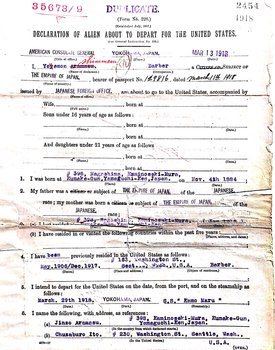 35673/9
DUPLICATE.
2454
1918
(Form No. 228.)
DECLARATION OF ALIEN ABOUT TO DEPART FOR THE UNITED STATES.
AMERICAN CONSULATE GENERAL YOKOHAMA, JAPAN. MAR 13 1918
I, Barber
THE EMPIRE OF JAPAN, bearer of passport No. March 11th 1918
issued by JAPANESE FOREIGN OFFICE, am about to go to the United States, accompanied by
Wife, born at
Sons under 16 years of age as follows:
born at
born at
And daughters under 21 years of age as follows:
born at
born at
# 398, Nagashima, Kaminoseki-Mura,
1. I was born at Kumake-Gun, Yamaguchi-Ken, Japan, on Nov. 4th 1884
2. My father was a citizen or subject of THE EMPIRE OF JAPAN. JAPANESE,
race; my mother was born a citizen or subject of THE EMPIRE OF JAPAN, of the
JAPANESE.
race, at Kaminoseki-Mura,
3. I have resided in or visited the following countries within the past five years:
4. I have been previously resided in the United States as follows:
# 163, Washington St.,
May.1906/Dec.1917. Wash., U.S.A. Barber.
5. I intend to depart for the United States on the date, from the port, and on the steamship as
follows:
March. 29th 1918. YOKOHAMA, JAPAN, S.S." Maru "
6. I name the following, with address, as references:
# 398, Kaminoseki-Mura, Kumake-Gun,
(a) Jinzo Yamaguchi-Ken, Japan.
(b) Chusaburo Ito, # 230, Washington St., Seattle, Wash.,
U.S.A.